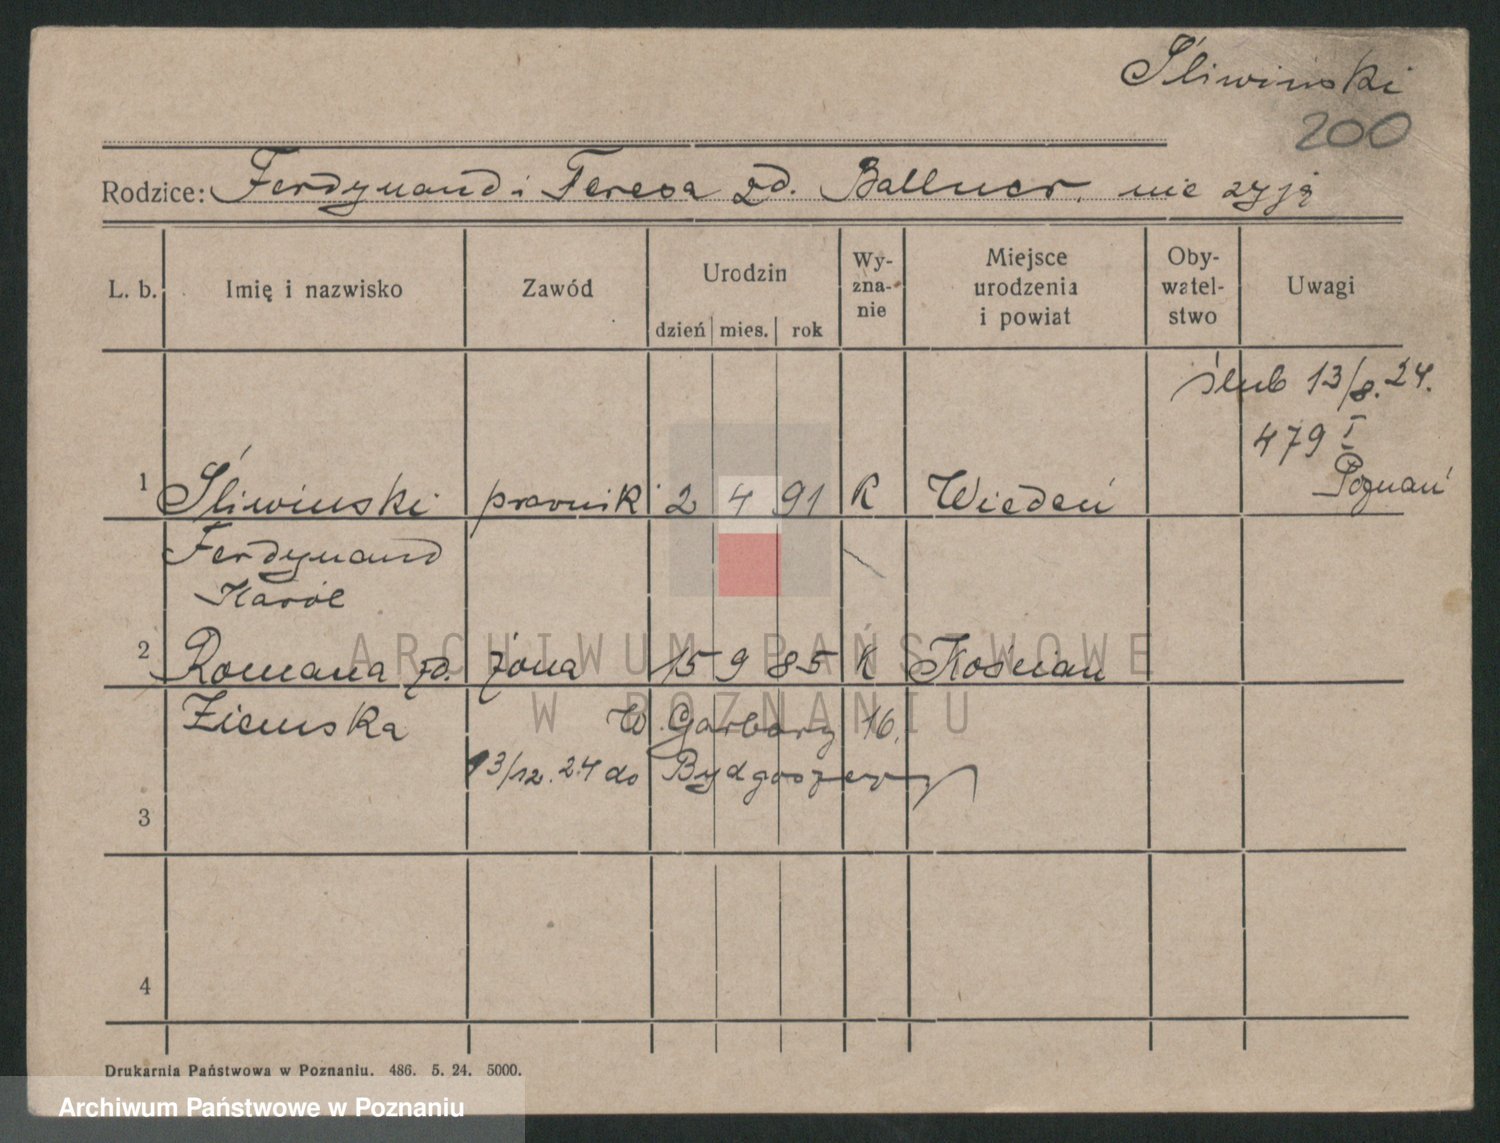 Śliwiński
200
Rodzice: Ferdynand i Teresa zd. Ballner. nie zyją
L. b. Imię i nazwisko Zawód Urodzin dzień mies. rok Wy-zna-nie Miejsce urodzenia i powiat Oby-watel-stwo Uwagi
ślub 13/8. 24.
479 I
Poznań
1 Śliwinski prawnik 2 4 91 K Wiedeń
Ferdynand
Karól
2 Romana zd. żona 15 9 85 K Kościan
Ziemska W. Garbary 16.
13/12. 24 do Bydgoszczy
3
4
Drukarnia Państwowa w Poznaniu. 486. 5. 24. 5000.
ARCHIWUM PAŃSTWOWE
W POZNANIU
Archiwum Państwowe w Poznaniu